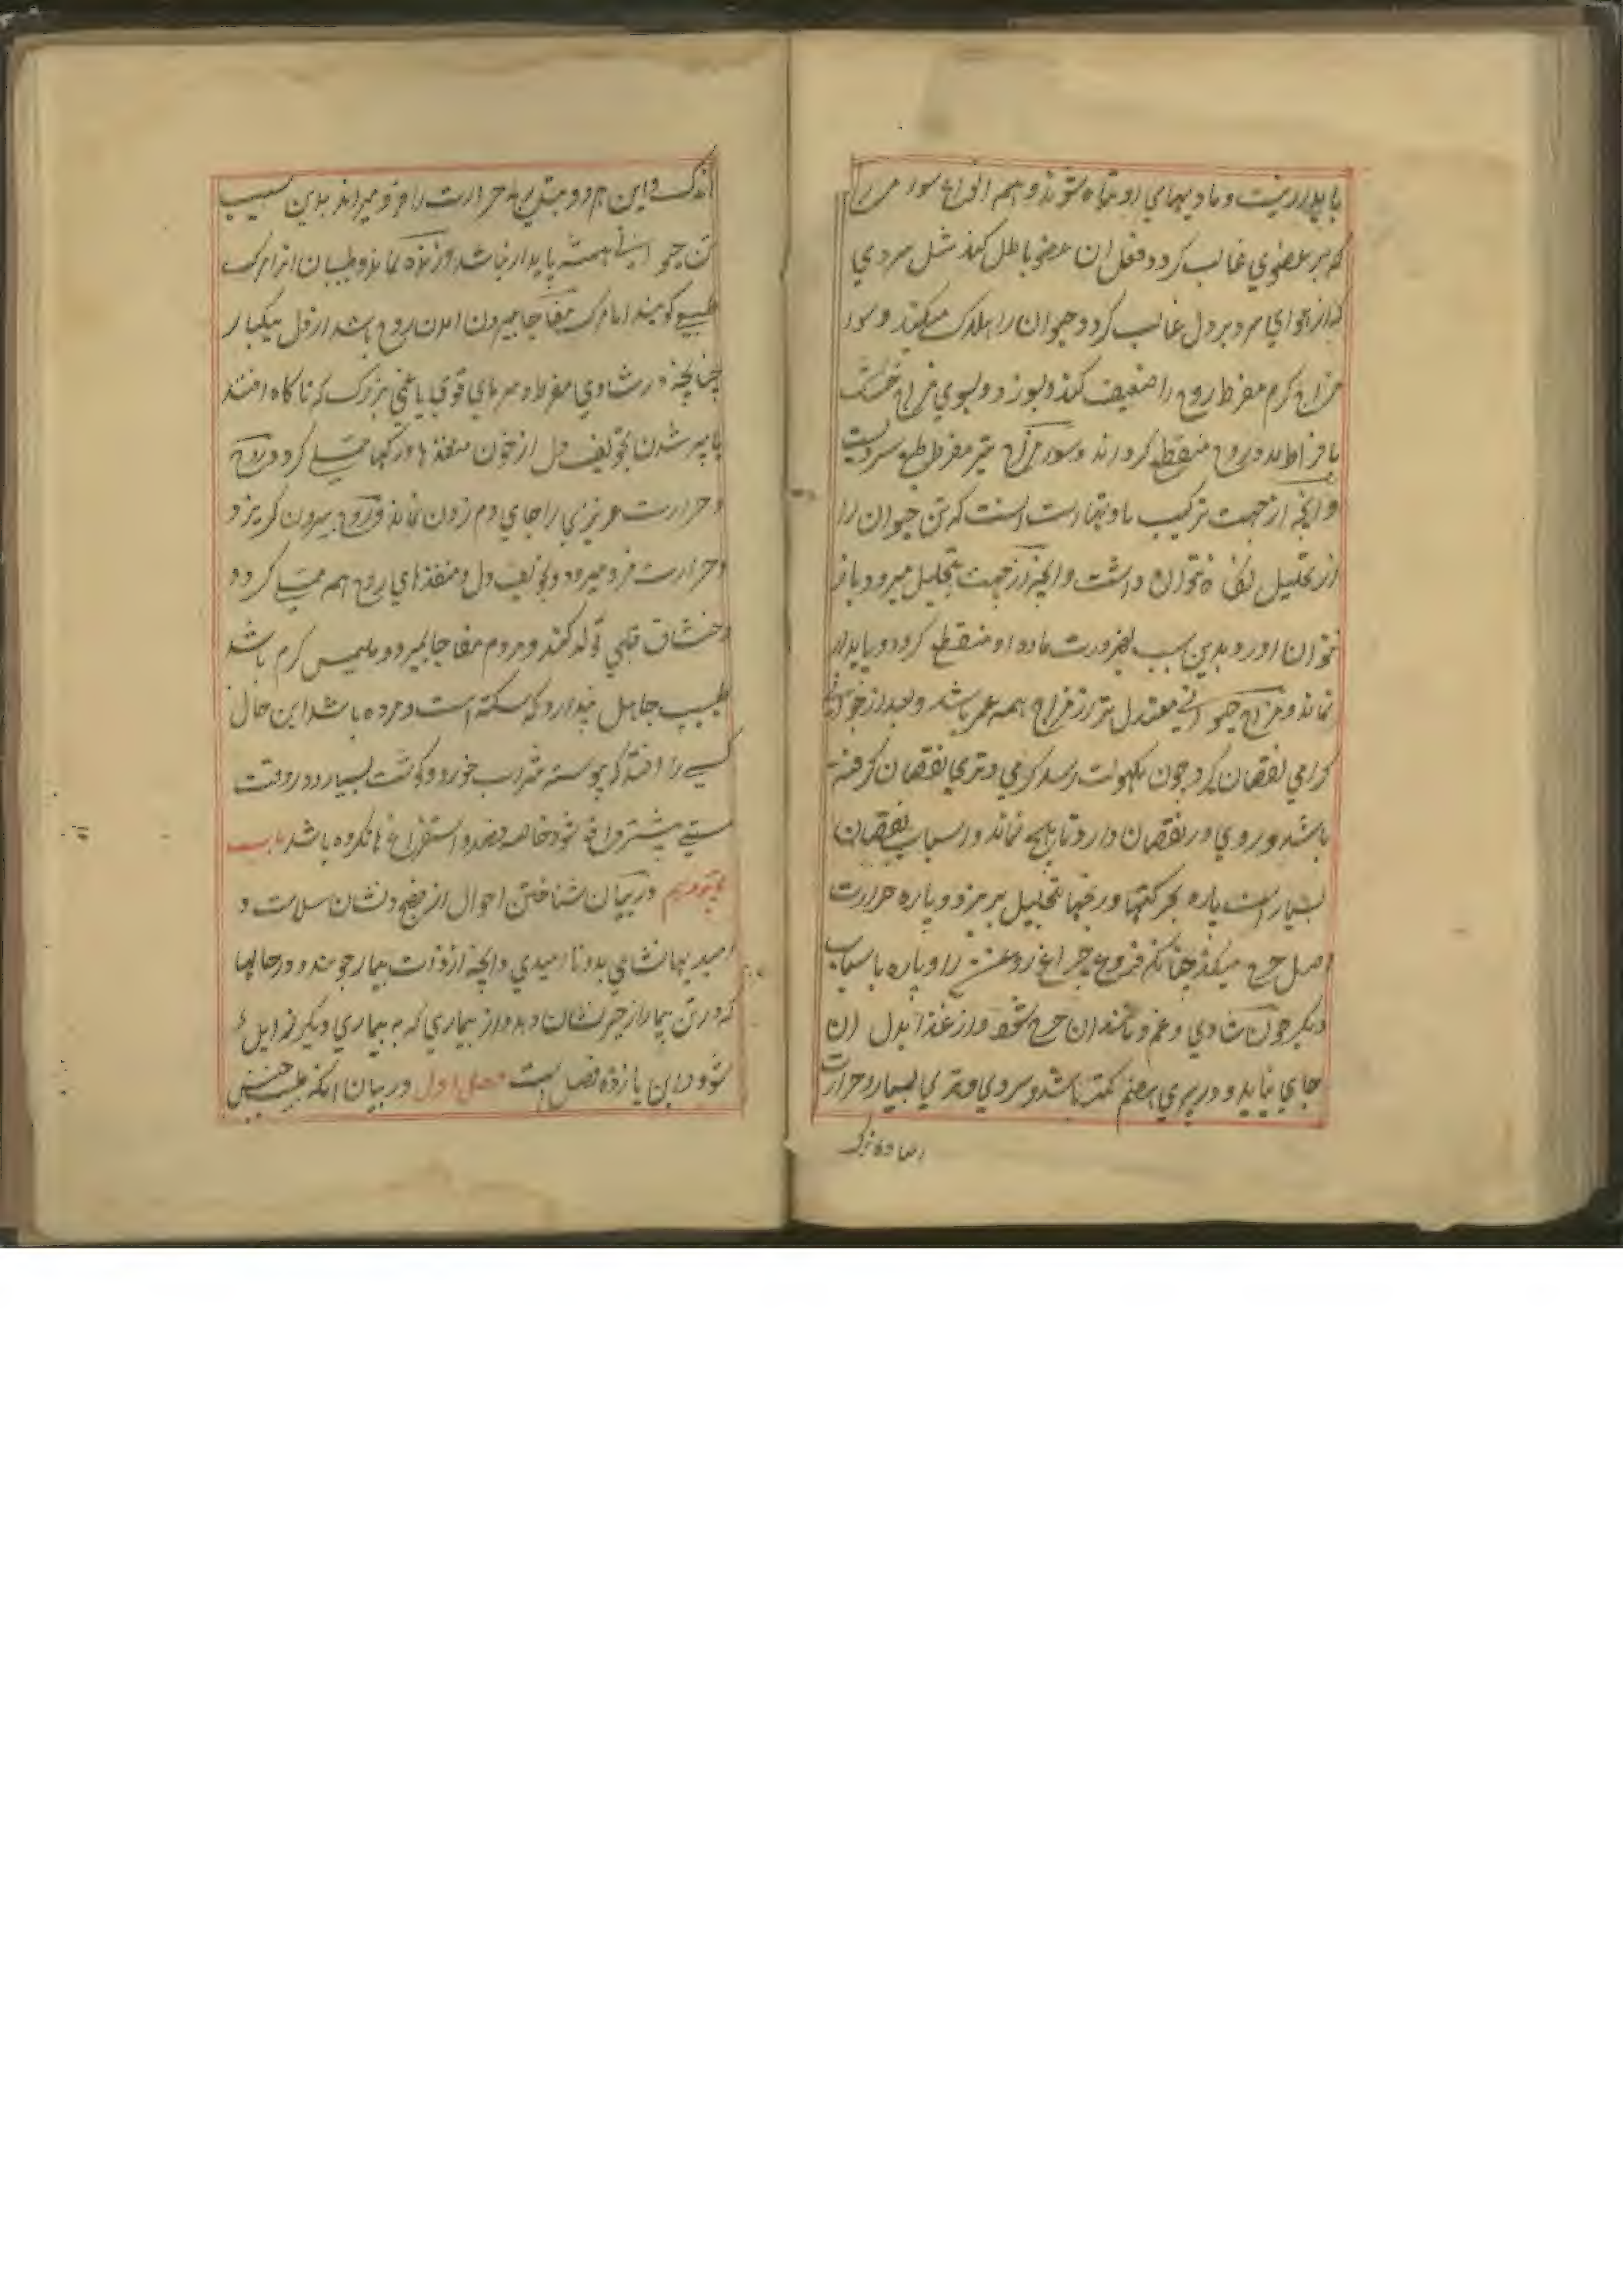 و مادیهای او تباه شوند و هم انواع سور
که بر عضوی غالب کردد فعل ان عضو باطل کند مثل سردی
که از هوای سرد بر دل غالب کردد و حیوان را هلاک میکند و سور
مزاج کرم مفرط روح را ضعیف کند و بسوزد و بسوی مزاج خشک
بافراط مدد روح منقطع کرداند و سور مزاج تر مفرط طبع سردیست
و انچه از جهت ترکیب ماده است انست که تن حیوان را
از تحلیل نکاه نتوان داشت و انچه از جهت تحلیل میرود باز
نتوان اورد و بدین سبب بضرورت ماده او منقطع کردد و پایدار
نماند و مزاج حیوانی معتدل تر از مزاج همه عمر باشد و بعد از جوانی
کرمی نقصان کرد چون بکهولت رسد کرمی و تری نقصان کرفته
باشد و روی در نقصان دارد تا هیچ نماند و اسباب نقصان
بسیار است پاره بحرکتها و رنجها تحلیل پذیرد و پاره حرارت
اصل خرج میکند چنانکه فروغ چراغ روغن را و پاره باسباب
دیکر چون شادی و غم و مانند ان خرج شود و از غذا بدل ان
جای نیاید و در پیری هضم کمتر باشد و سردی و تری بسیار و حرارت
اندک و این حرارت را فرو میراند بدین سبب
تن حیوانی همیشه پایدار نباشد و زنده نماند و طبیبان انرا مرک
طبیعی کویند اما مرک مفاجا بیرون امدن روح باشد از دل بیکبار
چنانچه در شادی مفرط و سرمای قوی یا غمی بزرک که ناکاه افتد
یا پر شدن تجویف دل از خون منفذها و رکها ممتلی کردد و روح
و حرارت عزیزی را جای دم زدن نماند و روح بیرون کریزد و
و حرارت فرو میرود و تجویف دل و منفذهای روح هم ممتلی کردد
و خناق قلبی تولد کند و مردم مفاجا بمیرد و ملمس کرم باشد
طبیب جاهل پندارد که سکته است و مرده باشد این حال
کسی را افتد که پیوسته شراب خورد و کوشت بسیار و در وقت
مستی بیشتر واقع شود خاصه فصد و استفراغها نکرده باشد باب
در بیان شناختن احوال از نضج و نشان سلامت و
امید بها نشانی بد و ناامیدی و انچه از ذات بیمار جویند و در حالها
که در تن بیمار از خیر نشان دهد و از بیماری که به بیماری دیکر زایل
شود و در این یازده فصل است فصل اول در بیان انکه طبیب